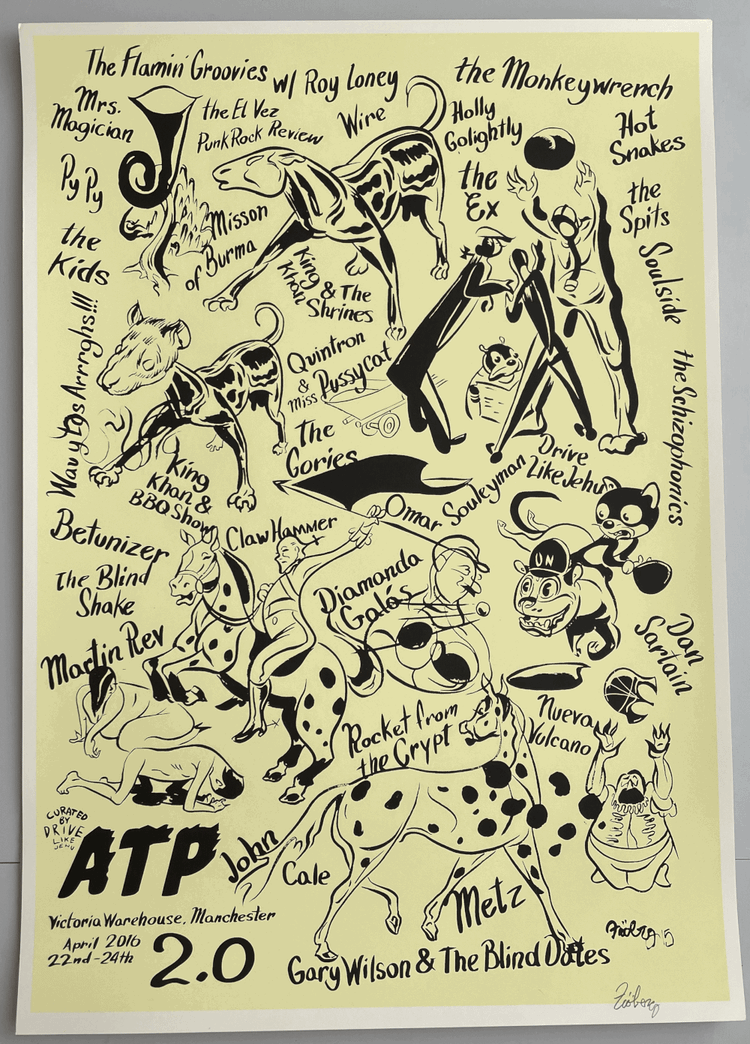 The Flamin' Groovies
w/ Roy Loney
the Monkeywrench
Mrs.
Magician
the El Vez
Punk Rock Review
Wire
Holly
Golightly
Hot
Snakes
Py Py
the
Ex
the
Spits
Misson
of Burma
the
Kids
King
Khan
& The
Shrines
Soulside
Wavy Gas Arrrghs!!!
Quintron
&
Miss Pussycat
the Schizophonics
The
Gories
King
Khan &
BBQ Show
Omar Souleyman
Drive
Like Jehu
Betunizer
Claw Hammer
ON
The Blind
Shake
Diamanda
Galás
Martin Rev
Dan
Sartain
Rocket from
the Crypt
Nueva
Vulcano
CURATED
BY
DRIVE
LIKE
JEHU
ATP
John
Cale
Metz
Victoria Warehouse, Manchester
April 2016
22nd-24th
2.0
Gary Wilson & The Blind Dates
Fröberg 15